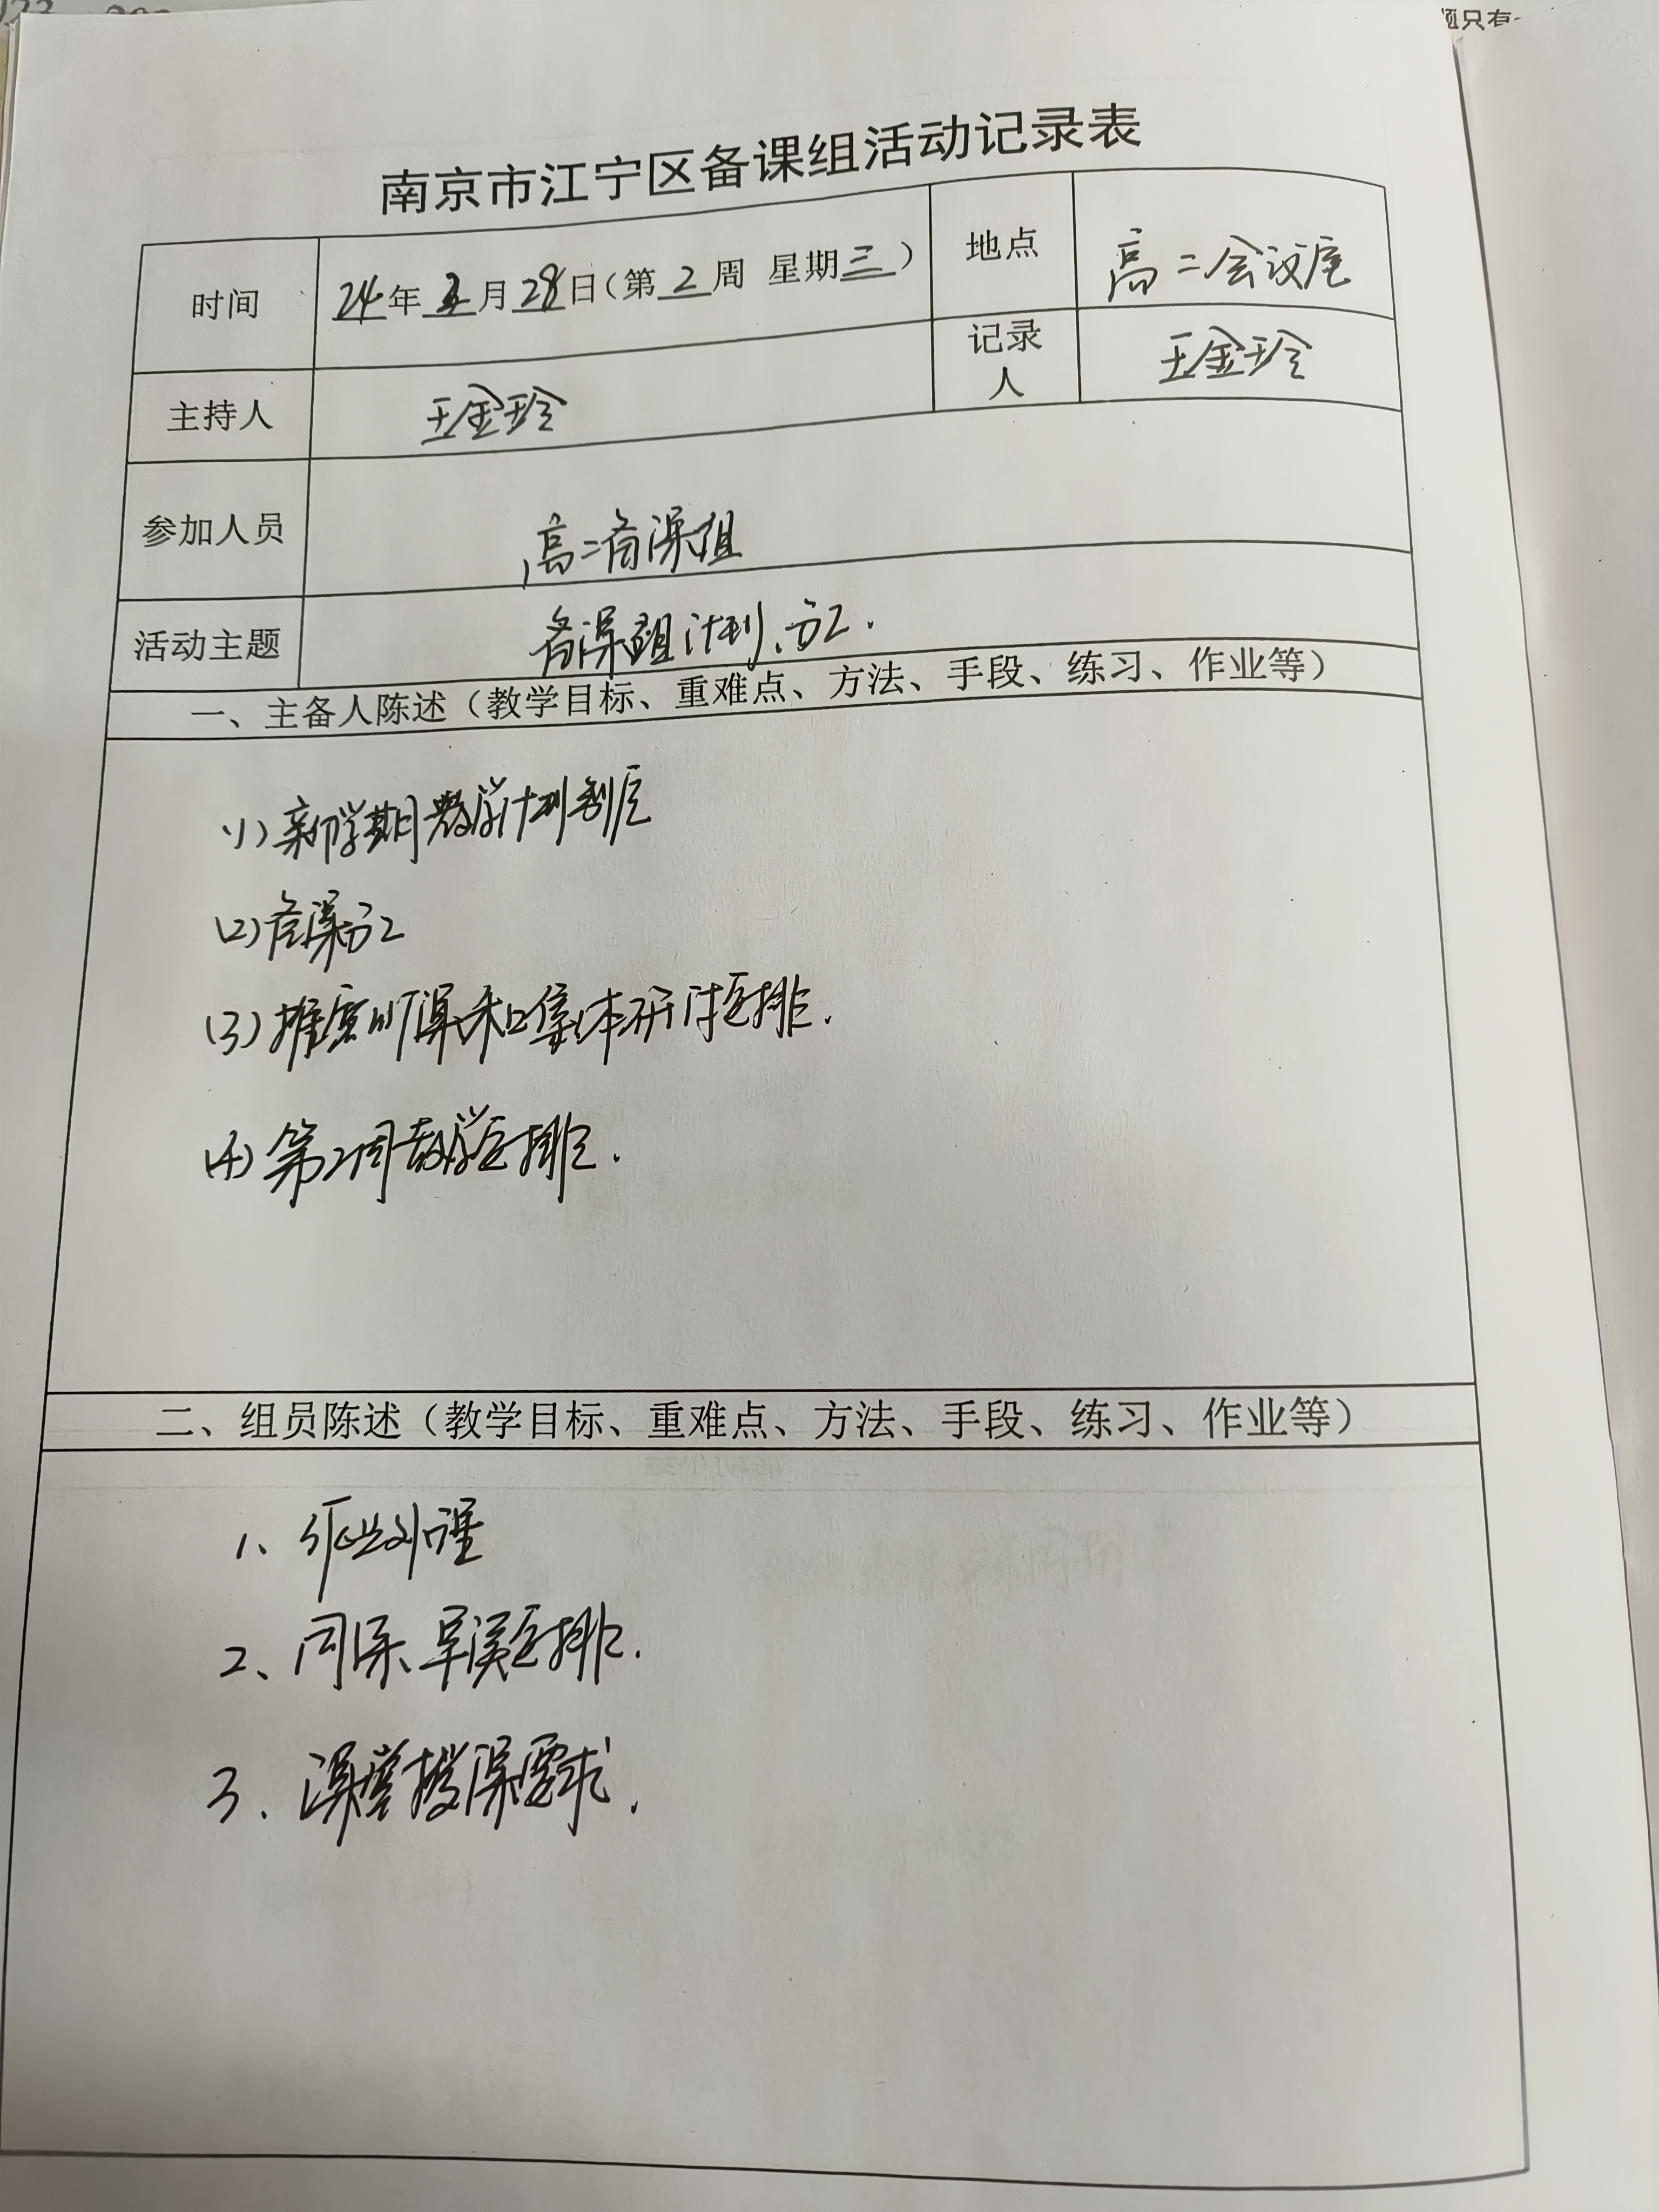 题只有
南京市江宁区备课组活动记录表
时间 24年2月28日(第2周 星期三) 地点 高二会议室
主持人 王金玲 记录人 王金玲
参加人员 高二备课组
活动主题 备课组计划、分工.
一、主备人陈述(教学目标、重难点、方法、手段、练习、作业等)
(1) 新学期教学计划制定
(2) 备课分工
(3) 推磨听课和集体研讨安排.
(4) 第2周教学安排.
二、组员陈述(教学目标、重难点、方法、手段、练习、作业等)
1、作业处理
2、同课、早读安排.
3、课堂授课要求.